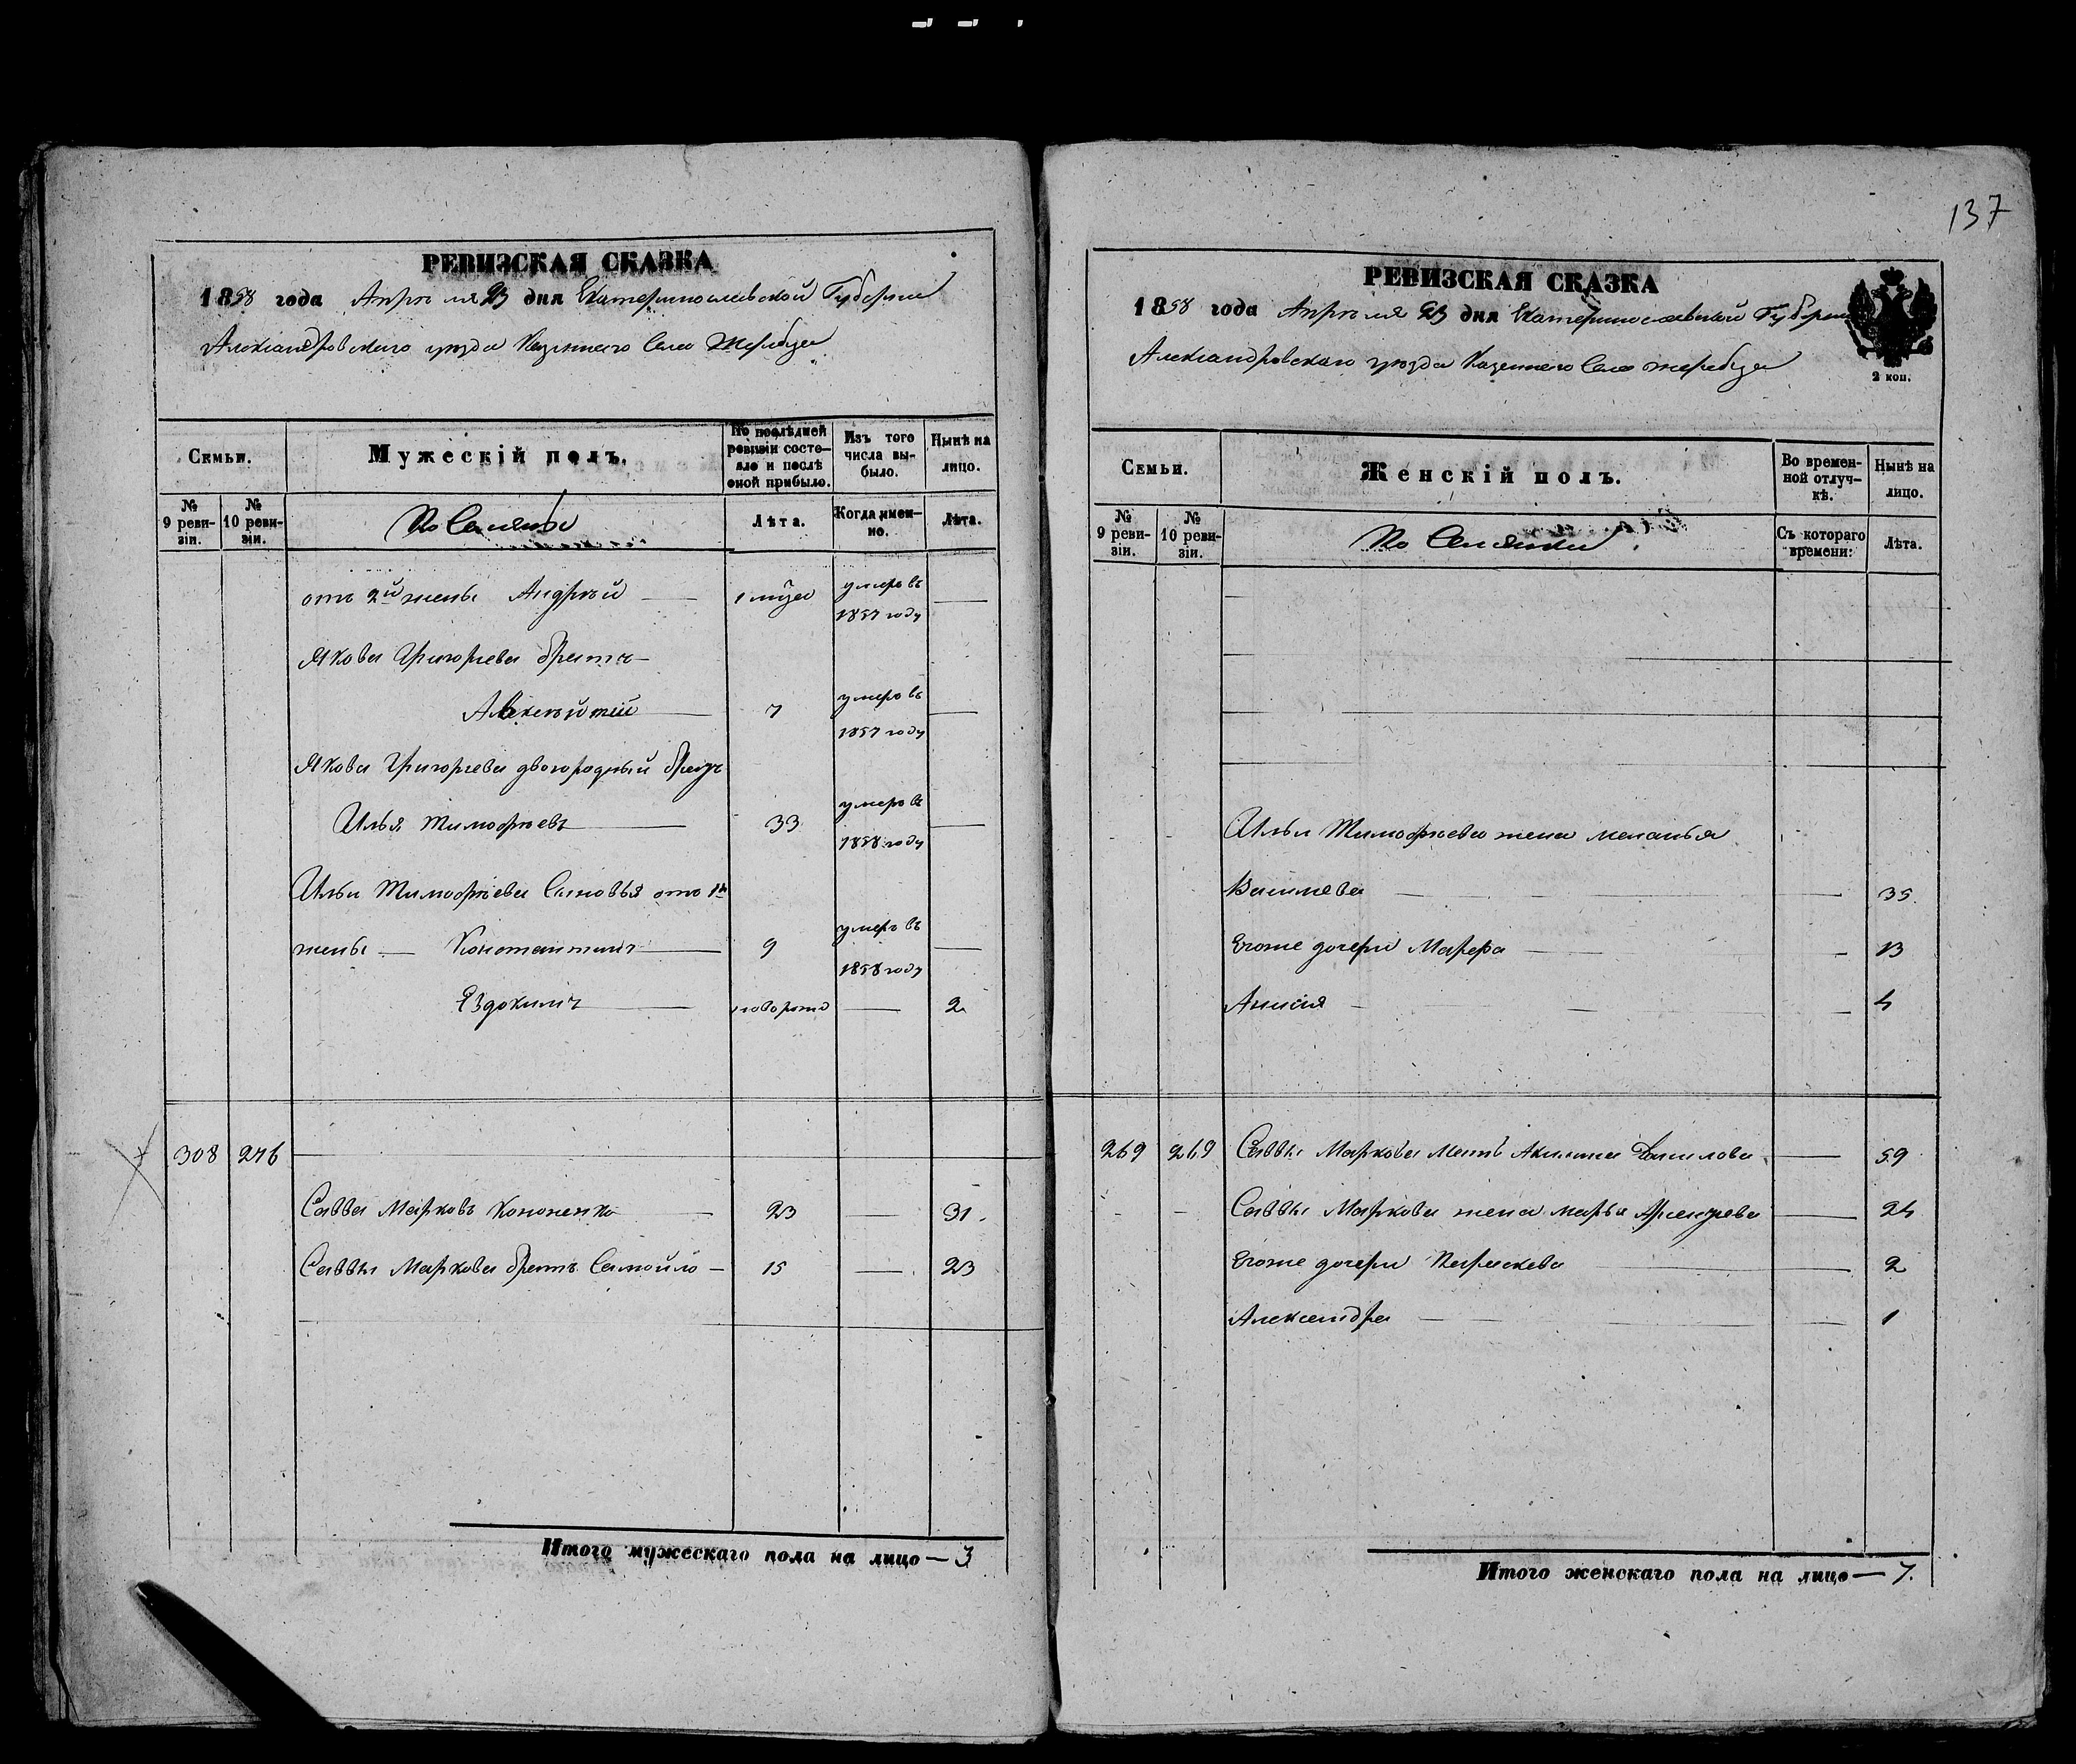 137
РЕВИЗСКАЯ СКАЗКА
1858 года Апреля 23 дня Екатеринославской Губернии
Александровского уезда Казенного Села Жеребца
Семьи.
Мужескій полъ.
По послѣдней ревизіи состояло и послѣ оной прибыло.
Изъ того числа выбыло.
Нынѣ на лицо.
№ 9 ревизіи.
№ 10 ревизіи.
Лѣта.
Когда именно.
Лѣта.
отъ 2й жены Андрѣй — умеръ въ 1857 году —
Якова Григорьева братъ
7 умеръ въ 1857 году —
Якова Григорьева двоюродный братъ
Илья Тимофѣевъ — 33 умеръ въ 1858 году —
Ильи Тимофѣева Сыновья отъ 1й
жены — Константинъ — 9 умеръ въ 1858 году —
Евдокимъ — новорожд — 2
308 276
Савва Марковъ Кононенко — 23 — 31.
Саввы Маркова братъ Самойло — 15 — 23
Итого мужескаго пола на лицо — 3
РЕВИЗСКАЯ СКАЗКА
1858 года Апреля 23 дня Екатеринославской Губернии
Александровскаго уезда Казенного Села Жеребца
2 коп.
Семьи.
Женскій полъ.
Во временной отлучкѣ.
Нынѣ на лицо.
№ 9 ревизіи.
№ 10 ревизіи.
Съ котораго времени:
Лѣта.
Ильи Тимофѣева жена Меланья
Васильева — 35
Егоже дочери Марфа — 13
Анисія — 4
269 269 Саввы Маркова Мать Акилина Данилова — 59
Саввы Маркова жена Марья — 24
Егоже дочери Параскева — 2
Александра — 1
Итого женскаго пола на лицо — 7.